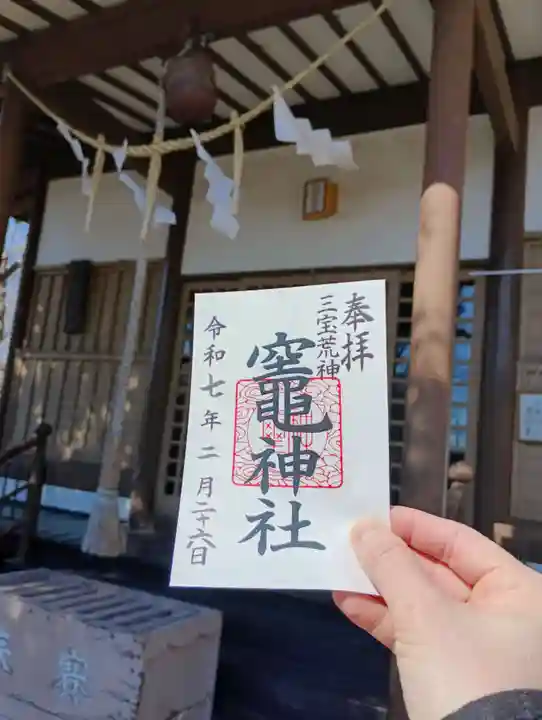 奉拝
三宝荒神
竈神社
令和七年二月二十六日